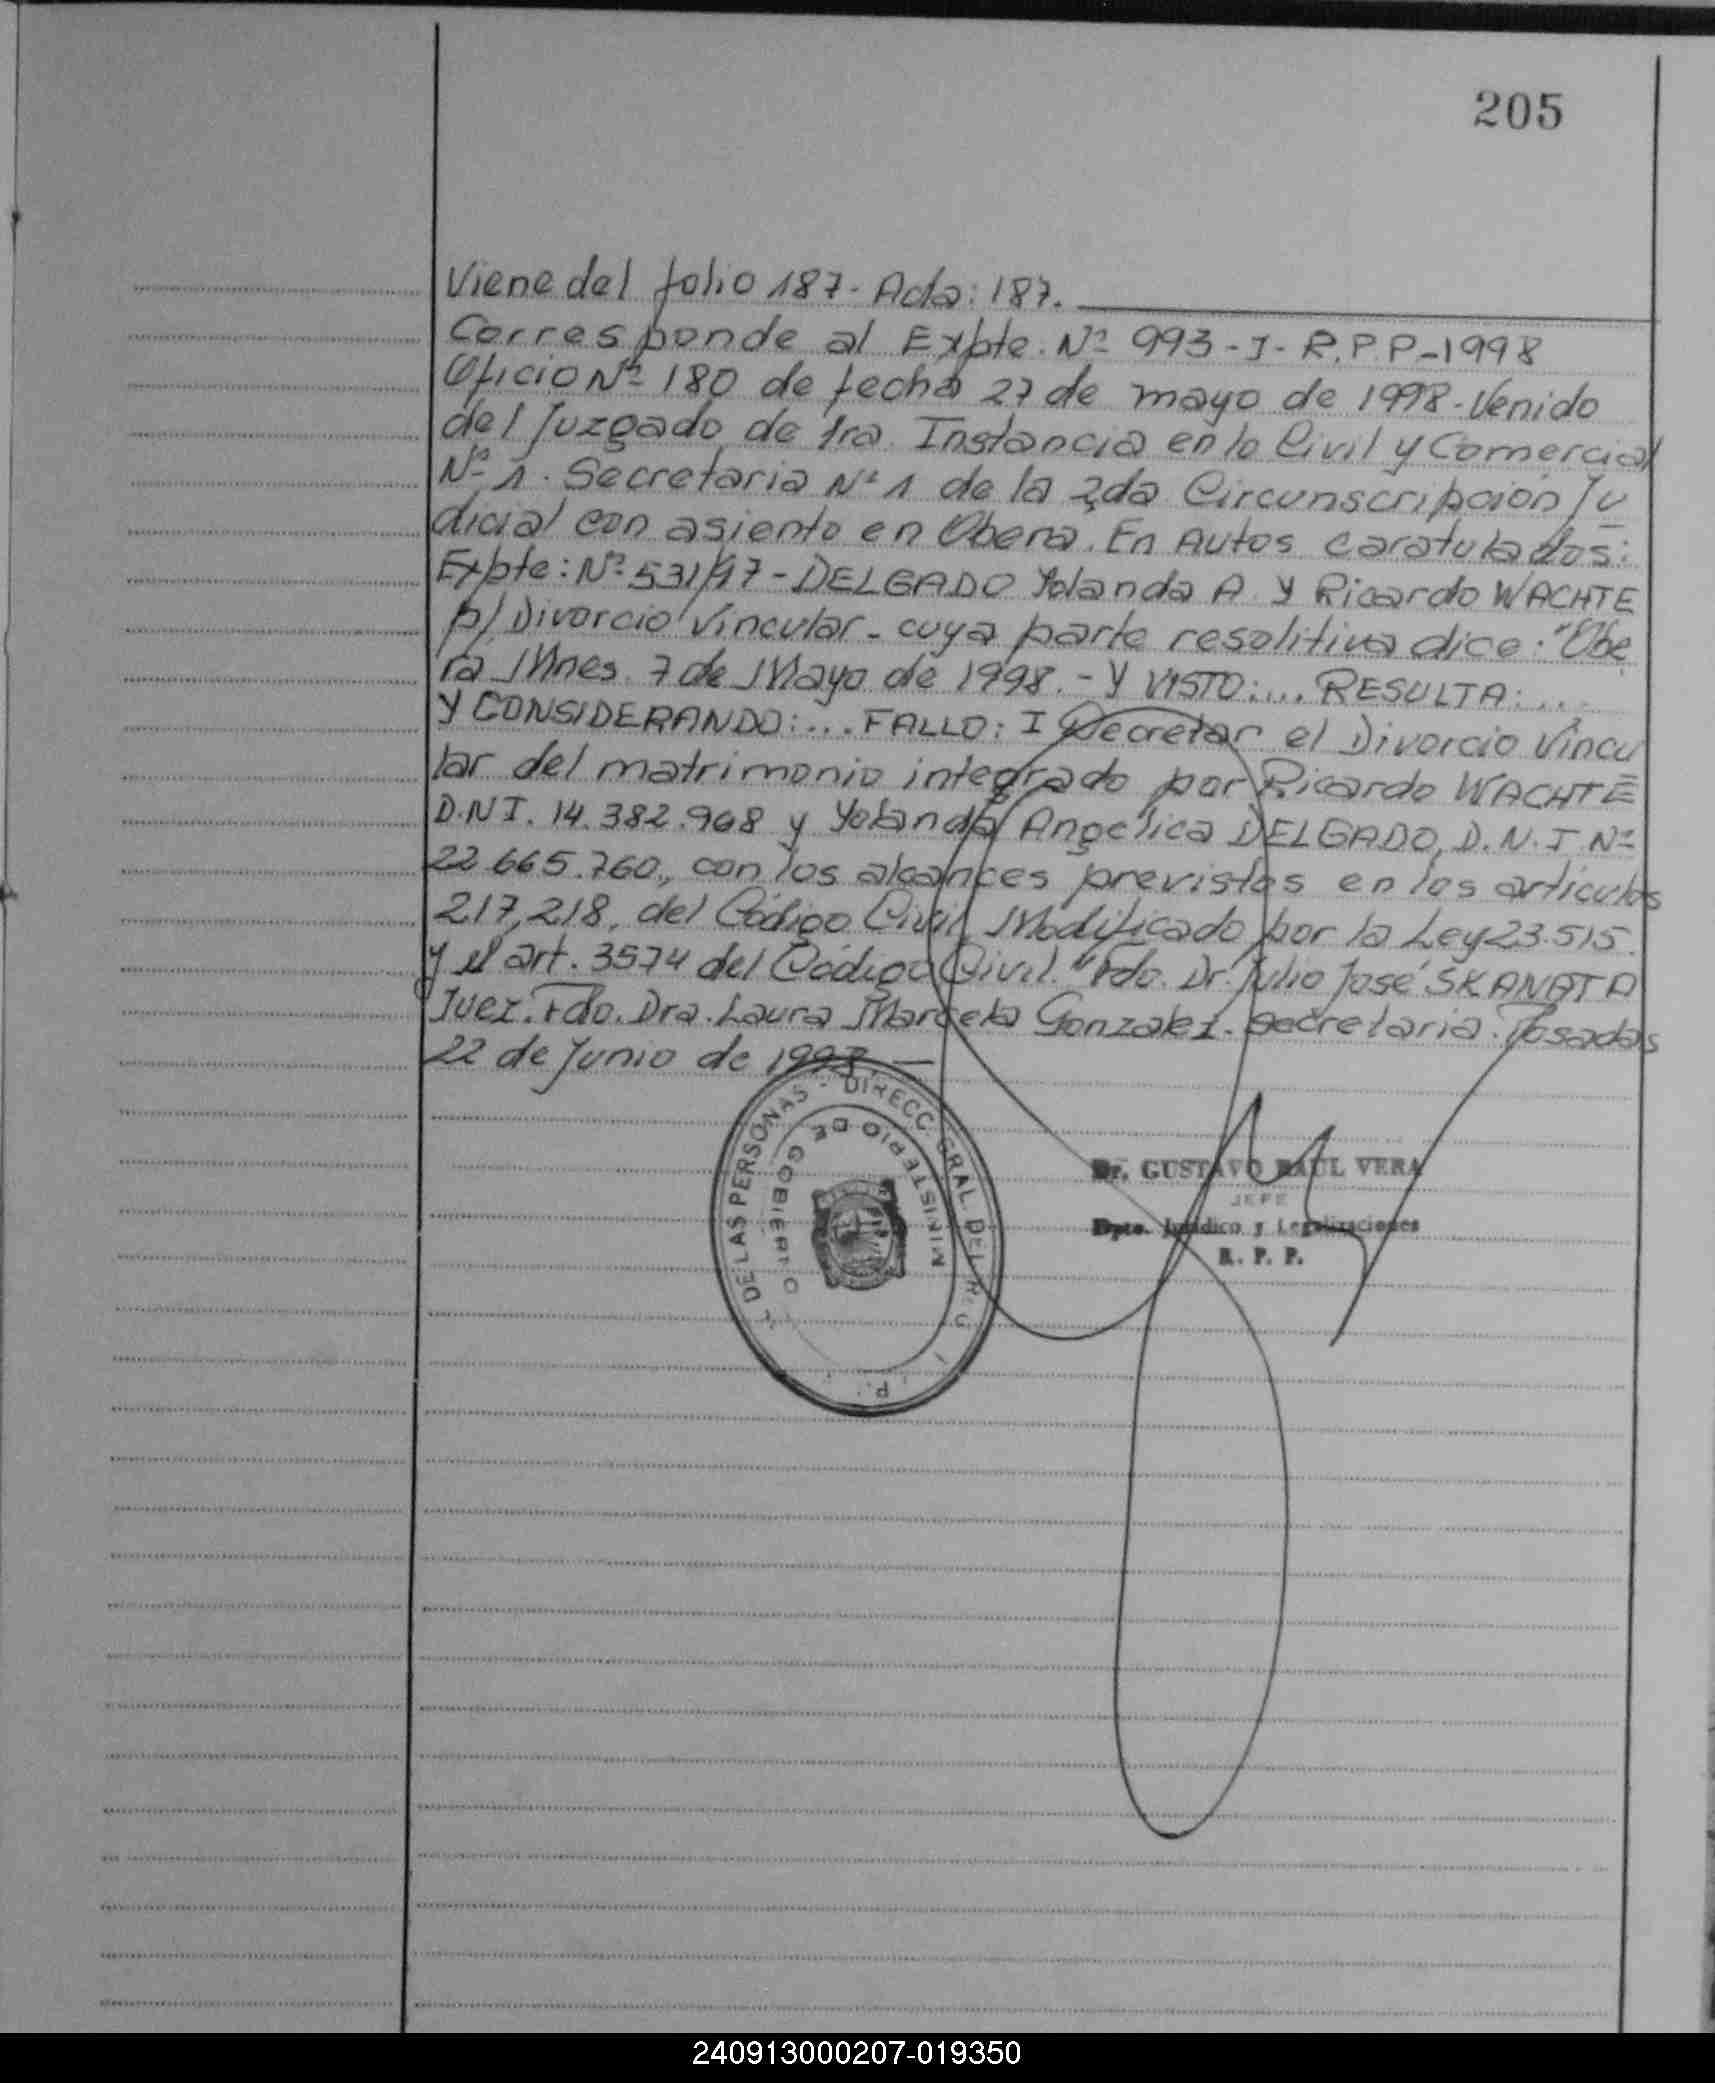 205
Viene del folio 187. Acta: 187.
Corresponde al Expte. Nº 993-J-R.P.P-1998
Oficio Nº 180 de fecha 27 de mayo de 1998-Venido
del Juzgado de 1ra. Instancia en lo Civil y Comercial
Nº 1. Secretaria Nº 1 de la 2da Circunscripción Ju
dicial con asiento en Obera. En Autos caratulados:
Expte: Nº 531/97-DELGADO Yolanda A y Ricardo WACHTE
p/ Divorcio Vincular-cuya parte resolitiva dice: "Obe
ra Mnes. 7 de Mayo de 1998.-Y VISTO:... RESULTA:...
Y CONSIDERANDO:... FALLO: I Decretar el Divorcio Vincu
lar del matrimonio integrado por Ricardo WACHTE
D.N.I. 14.382.968 y Yolanda Angelica DELGADO, D.N.I Nº
22.665.760, con los alcances previstos en los articulos
217,218, del Código Civil Modificado por la Ley 23.515.
y el art. 3574 del Código Civil." Fdo. Dr. Julio José
Juez. Fdo. Dra. Laura Marcela Gonzalez-secretaria. Posadas
22 de Junio de 1998.
DE LAS PERSONAS - DIRECC. GRAL. DEL
MINISTERIO DE GOBIERNO
Dr. GUSTAVO RAUL VERA
JEFE
Dpto. Jurídico y Legalizaciones
R. P. P.
240913000207-019350